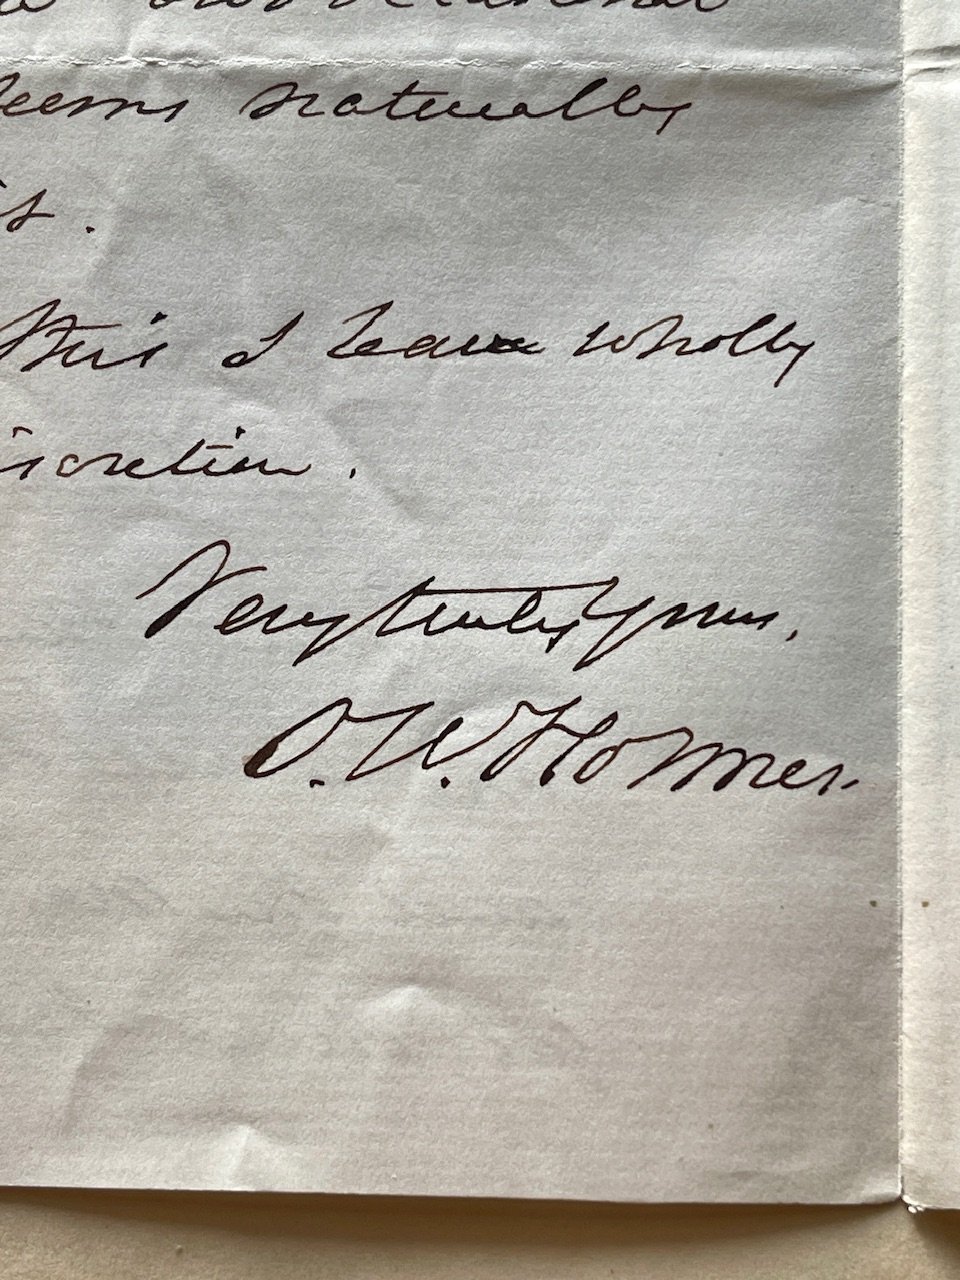 seems naturally
this I leave wholly
iscretion.
Very truly yours,
O. W. Holmes.